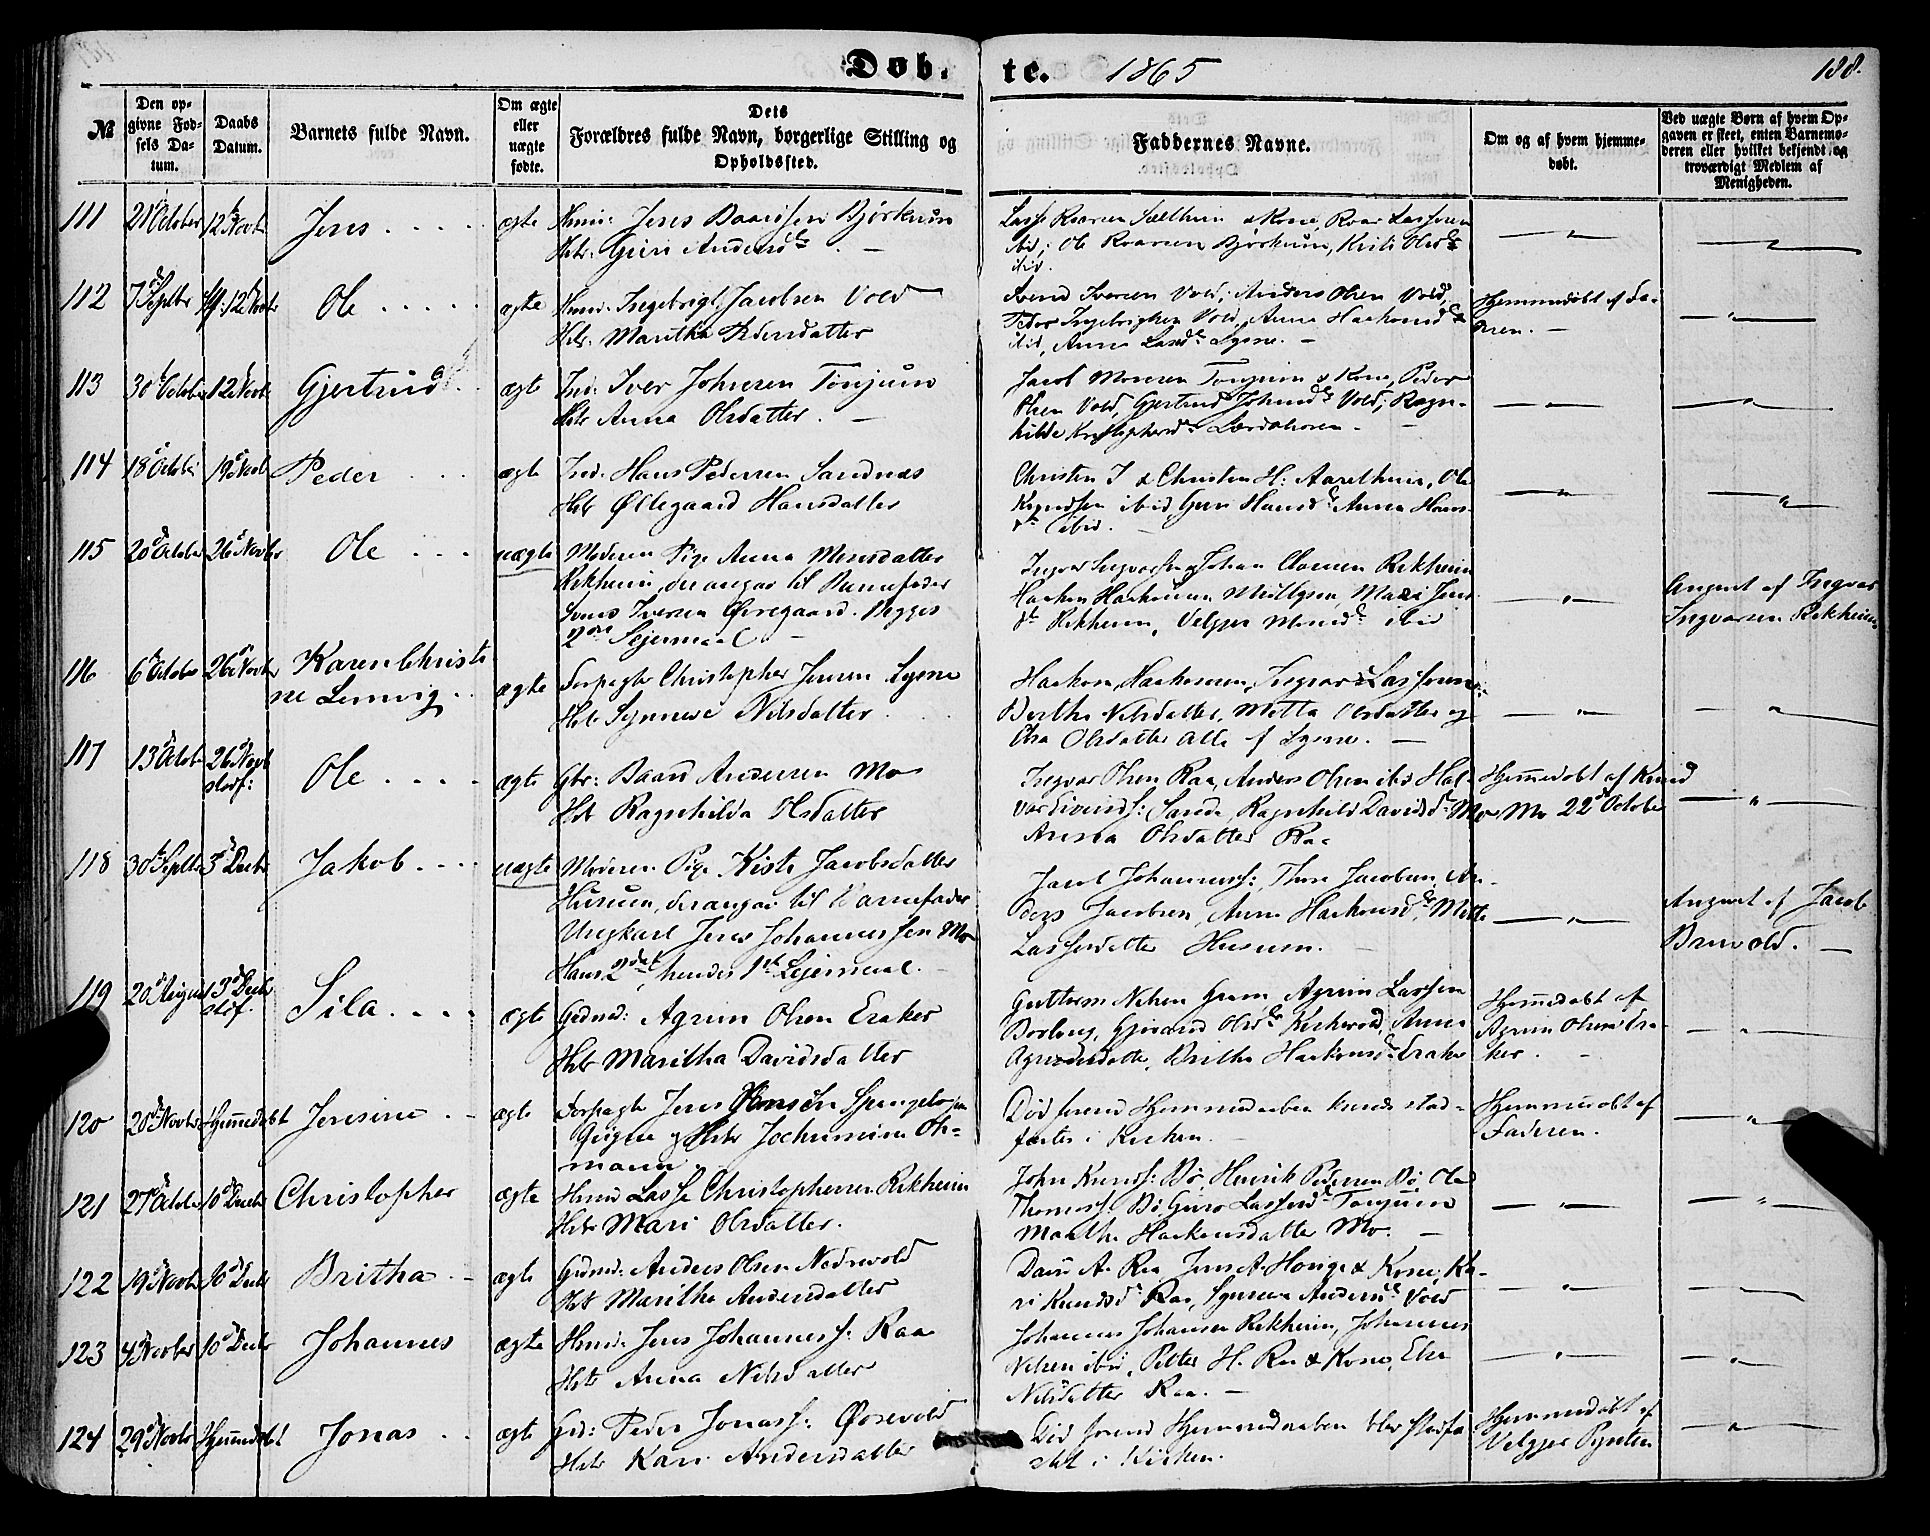 Døb. te. 1865 188.
№
Den op-
givne Fød-
sels Da-
tum.
Daabs
Datum.
Barnets fulde Navn.
Om ægte
eller
uægte
fødte.
Dets
Forældres fulde Navn, borgerlige Stilling og
Opholdssted.
Faddernes Navne.
Om og af hvem hjemme-
døbt.
Ved uægte Børn af hvem Op-
gaven er skeet, enten Barnemo-
deren eller hvilket bekjendt og
troværdigt Medlem af
Menigheden.
111 21 October 12 Novbr Jens ægte Jens Baardsen Bjørkum
Hstr: Guri Andersd
Lasse Roarsen Sælthun & Kone, Roar Lassesen
ibid, Ole Roarsen Bjørkum, Kristi Olsd
ibid.
112 7 Septbr 12 Novbr Ole ægte Ingebrigt Jacobsen Vold
Hstr. Maritha Pedersdatter
Svend Iversen Vold, Anders Olsen Vold,
Peder Ingebrigtsen Vold, Anna Haakonsd
ibid, Anna Larsd Lysne.
Hjemmedøbt af Fa-
deren.
113 30 October 12 Novbr Gjertrud ægte Ind: Iver Johnsen Tønjum
Hstr Anna Olsdatter.
Jacob Monsen Tønjum & Kone, Peder
Olsen Vold, Gjertrud Johnsd Vold, Ragn-
hilde Kristophersd Lærdalsøren
114 18 October 19 Novb Peder ægte Ind: Hans Pedersen Sandnæs
Hstr Øllegaard Hansdatter
Christen J & Christen H: Aarethun, Ole
Knudsen ibid, Guri Hansd Anna Hans-
dt ibid.
115 20 October 26 Novbr Ole uægte Moderen Pige Anna Monsdatter
Rikheim, der angav til Barnefader
Iversen Øvregaard. Begges
2det Leiermaal
Ingvar Ingvarsen, Johan Clausen Rikheim
Haakon Haakonsen, Mari Jens
dt Rikheim, Velgjer Monsd ibid
Angivet af Ingvar
Ingvarsen Rikheim
116 6 October 26 Novbr Karen Christi
ne Lemvig ægte Forpagter Christopher Jensen Lysne
Hstr Synneve Nilsdatter.
Haakon Haakonsen, Ingvar Lassesen
Berthe Nilsdatter, Metta Olsdatter og
Elsa Olsdatter alle af Lysne.
117 13 Octob 26 Novb
stadf: Ole ægte Gbr: Baard Andersen Mo
Hstr Ragnhilda Olsdatter
Ingvar Olsen Raa, Anders Olsen ibid Hal-
vor Sand, Ragnhild Davidsd Mo
Anna Olsdatter Raa
Hjemmedøbt af Knud
Mo 22 October
118 30 Septbr 3 Decbr Jakob uægte Moderen Pige Kisti Jacobsdatter
Husum, der angav til Barnefader
Ungkarl Jens Johannessen Mo
Hans 2det, hendes 1st Leiermaal.
Jacob Johannesf:, Thore Jacobsen, An-
ders Jacobsen, Anna Haakonsd, Mette
Lassesdatter Husum.
Angivet af Jacob
Bruvold.
119 20 August 3 Decbr
stadf. Sila ægte Gdmd: Agrim Olsen Eraker
Hstr Maritha Davidsdatter
Guttorm Nilsen Gram, Agrim Lassen
Borlaug, Olsd Kirkevold, Anna
datter, Britha Haakonsd Eraker
Hjemmedøbt af
Agrim Olsen Era-
ker.
120 20 Novbr Hjemmedøbt Jensine ægte Forpagter Jens Hansen Spangelo
Guigne og Hstr Jochumsine Oh-
mann
Død førend Hjemmedaaben kunde stad-
fæstes i Kirken.
Hjemmedøbt af
Faderen.
121 27 October 10 Decbr Christopher ægte Lasse Christophersen Rikheim
Hstr Mari Olsdatter.
John Knudsf: Bø, Henrik Pedersen Bø, Ole
Thomesf: Bø, Guro Lassesd Tønjum
Marthe Haakonsdatter Mo.
122 19 Novbr 10 Decbr Britha ægte Gdmd: Anders Olsen Nedrevold
Hstr Marithe Andersdatter
David A. Raa Jens A. Houge & Kone, Ka-
ri Knudsd Raa, Synneva Andersd Vold
123 4 Novber 10 Decbr Johannes ægte Jens Johannesf: Raa
Hstr Anna Nilsdatter
Johannes Johansen Rikheim, Johannes
Nilsen ibid, Petter H. Raa & Kone, Elsa
Nilsdatter Raa.
124 29 Novbr Hjemmedøbt Jonas ægte Peder Jonasf: Øvrevold
Hstr Kari Andersdatter
Død førend Hjemmedaaben blev stadfæ-
stet i Kirken.
Hjemmedøbt af
Velgjer